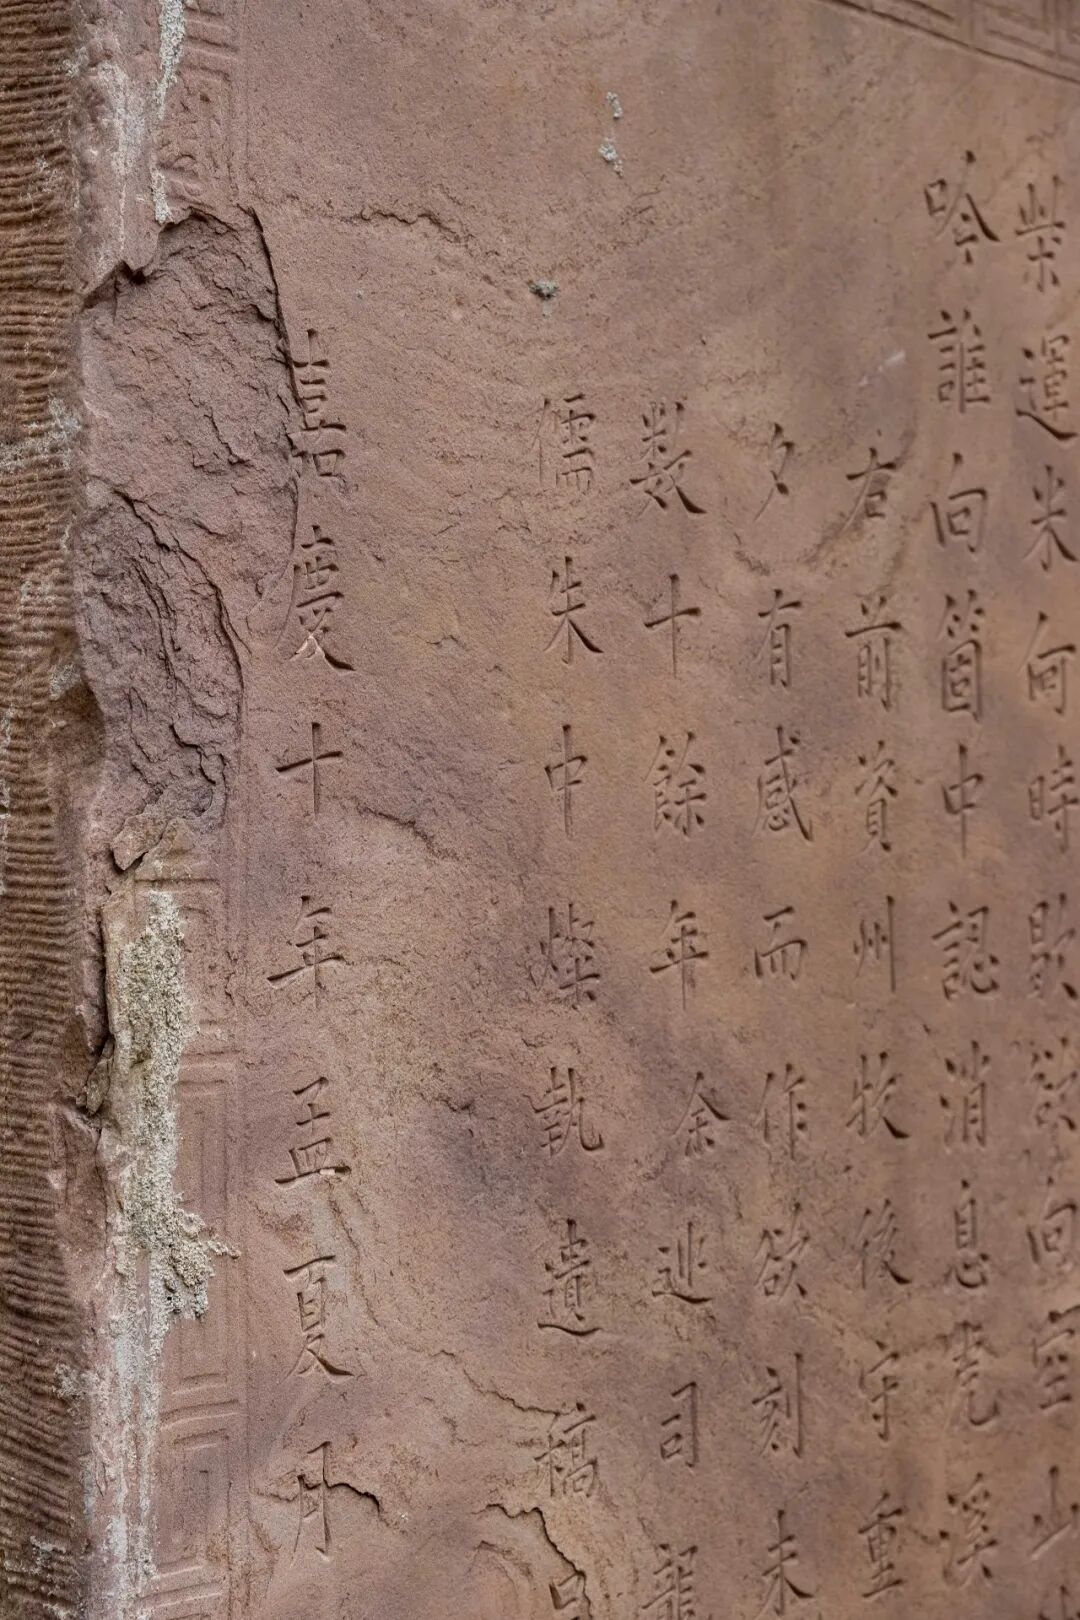 柴運米何時歇欲向空山
吟誰向箇中認消息凭溪
右前資州牧後守重
夕有感而作欲刻未
數十餘年余巡司龍
儒朱中燦執遺稿
嘉慶十年孟夏月